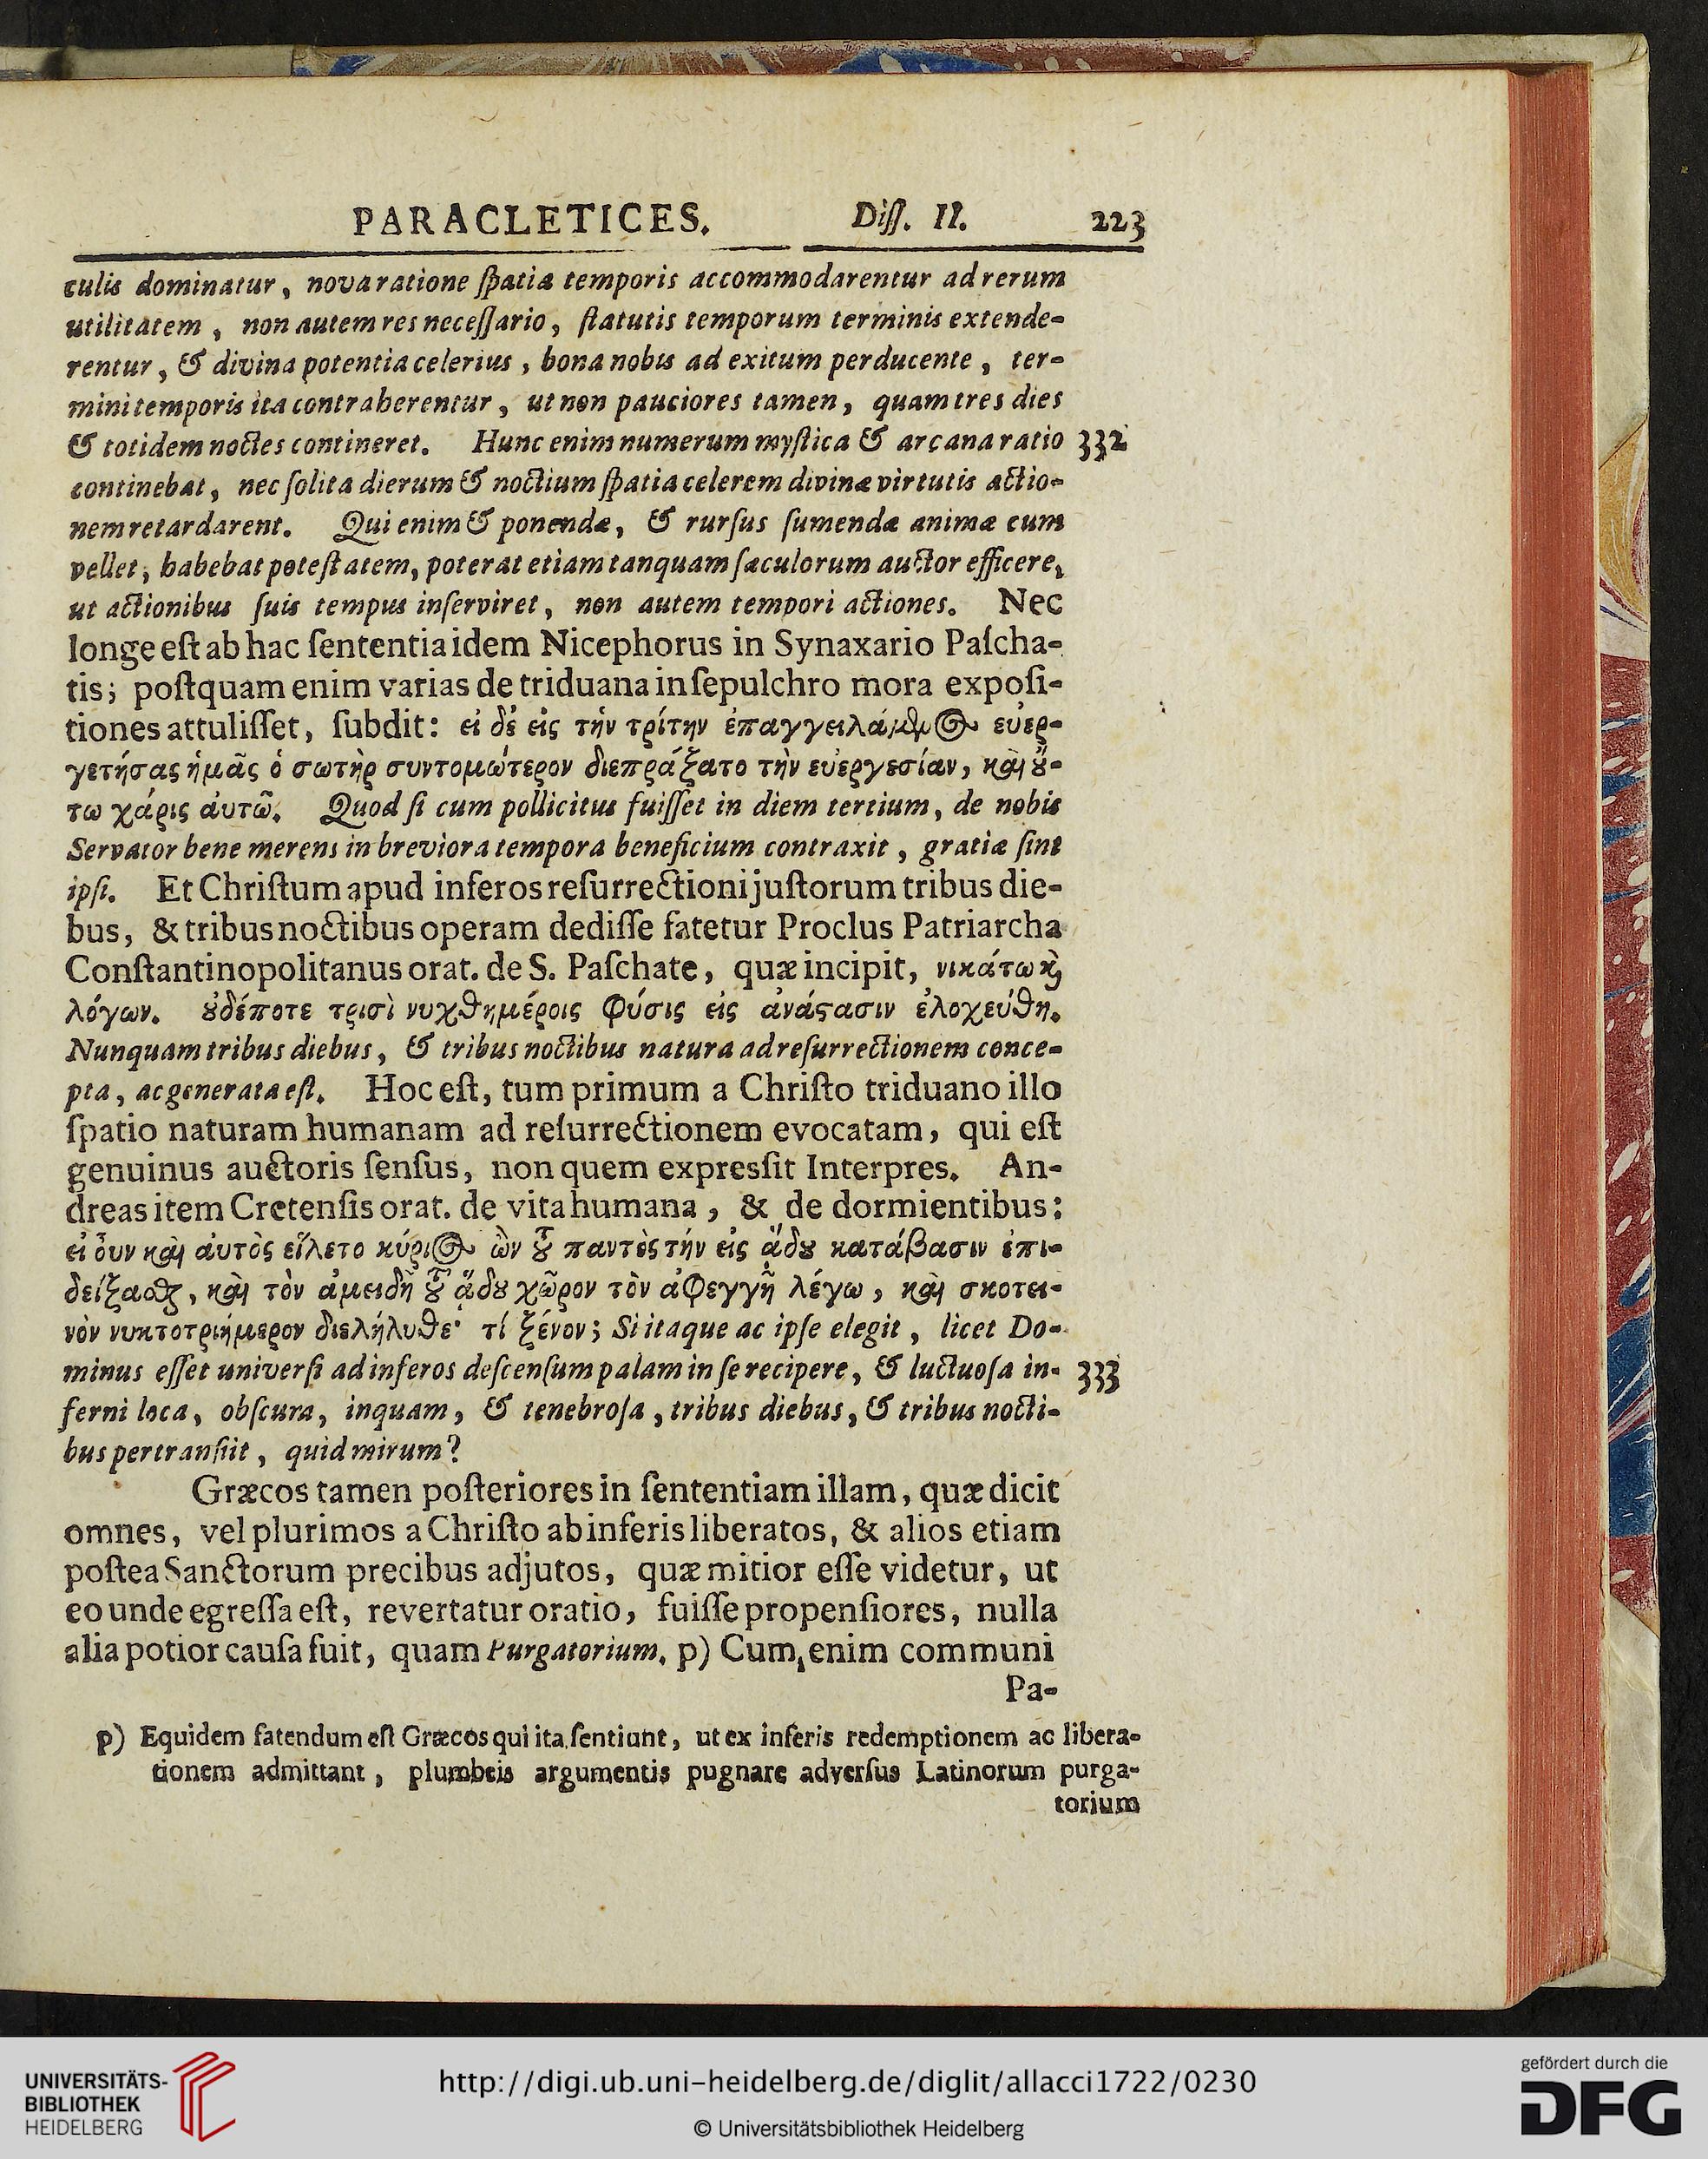 PARACLETICES. Diſſ. II. 223
culis dominatur, nova ratione ſpatia temporis accommodarentur ad rerum
utilitatem, non autem res neceſſario, ſtatutis temporum terminis extende-
rentur, & divina potentia celerius, bona nobis ad exitum perducente, ter-
mini temporis ita contraherentur, ut non pauciores tamen, quam tres dies
& totidem noctes contineret. Hunc enim numerum myſtica & arcana ratio 332
continebat, nec ſolita dierum & noctium ſpatia celerem divinæ virtutis actio-
nem retardarent. Qui enim & ponendæ, & rurſus ſumendæ animæ cum
vellet, habebat poteſtatem, poterat etiam tanquam ſæculorum auctor efficere,
ut actionibus ſuis tempus inſerviret, non autem tempori actiones. Nec
longe eſt ab hac ſententia idem Nicephorus in Synaxario Paſcha-
tis; poſtquam enim varias de triduana in ſepulchro mora expoſi-
tiones attuliſſet, ſubdit: εἰ δὲ εἰς τὴν τρίτην ἐπαγγειλάμενος εὐερ-
γετήσας ἡμᾶς ὁ σωτὴρ συντομώτερον διεπράξατο τὴν εὐεργεσίαν, καὶ ȣ̔́-
τω χάρις ἀυτῶ. Quod ſi cum pollicitus fuiſſet in diem tertium, de nobis
Servator bene merens in breviora tempora beneficium contraxit, gratiæ ſint
ipſi. Et Chriſtum apud inferos reſurrectioni juſtorum tribus die-
bus, & tribus noctibus operam dediſſe fatetur Proclus Patriarcha
Conſtantinopolitanus orat. de S. Paſchate, quæ incipit, νικάτω ϗ̀
λόγων. ȣ̓δέποτε τρισὶ νυχθημέροις φύσις εἰς ἀνάϛασιν ἐλοχεύθη.
Nunquam tribus diebus, & tribus noctibus natura ad reſurrectionem conce-
pta, ac generata eſt. Hoc eſt, tum primum a Chriſto triduano illo
ſpatio naturam humanam ad reſurrectionem evocatam, qui eſt
genuinus auctoris ſenſus, non quem expresſit Interpres. An-
dreas item Cretenſis orat. de vita humana, & de dormientibus:
εἰ ὀυν καὶ ἀυτὸς εἵλετο κύριος ὢν τȣ͂ παντὸς τήν εἰς ᾅδȣ κατάβασιν ἐπι-
δείξασθαι, καὶ τὸν ἀμειδῆ τȣ͂ ᾅδȣ χῶρον τὸν ἀφεγγῆ λέγω, καὶ σκοτει-
νὸν νυκτοτριήμερον διελήλυθε· τί ξένον; Si itaque ac ipſe elegit, licet Do-
minus eſſet univerſi ad inferos deſcenſum palam in ſe recipere, & luctuoſa in- 333
ferni loca, obſcura, inquam, & tenebroſa, tribus diebus, & tribus nocti-
bus pertranſiit, quid mirum?
Græcos tamen poſteriores in ſententiam illam, quæ dicit
omnes, vel plurimos a Chriſto ab inferis liberatos, & alios etiam
poſtea Sanctorum precibus adjutos, quæ mitior eſſe videtur, ut
eo unde egreſſa eſt, revertatur oratio, fuiſſe propenſiores, nulla
alia potior cauſa fuit, quam Purgatorium. p) Cum enim communi
Pa-
p) Equidem fatendum eſt Græcos qui ita ſentiunt, ut ex inferis redemptionem ac libera-
tionem admittant, plumbeis argumentis pugnare adverſus Latinorum purga-
torium
UNIVERSITÄTS-
BIBLIOTHEK
HEIDELBERG
http://digi.ub.uni-heidelberg.de/diglit/allacci1722/0230
© Universitätsbibliothek Heidelberg
gefördert durch die
DFG